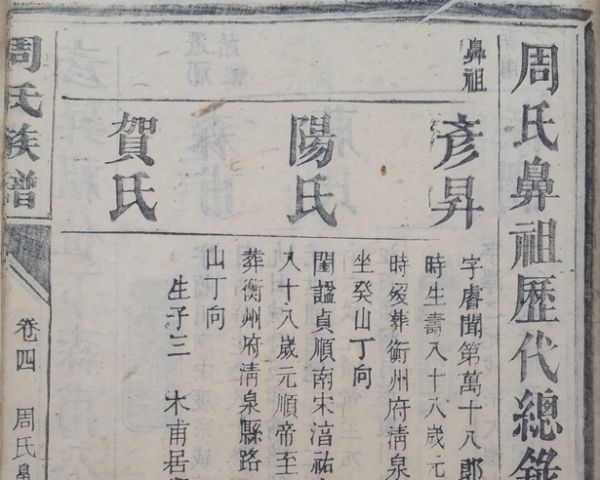 周氏鼻祖歷代總錄
鼻祖
彥昇
字睿聞第萬十八郎
時生壽八十八歲元
時歿葬衡州府清泉
坐癸山丁向
陽氏
閨諡貞順南宋淳祐
八十八歲元順帝至
葬衡州府清泉縣路
山丁向
賀氏
生子三 木甫居
周氏族譜
卷四
周氏鼻